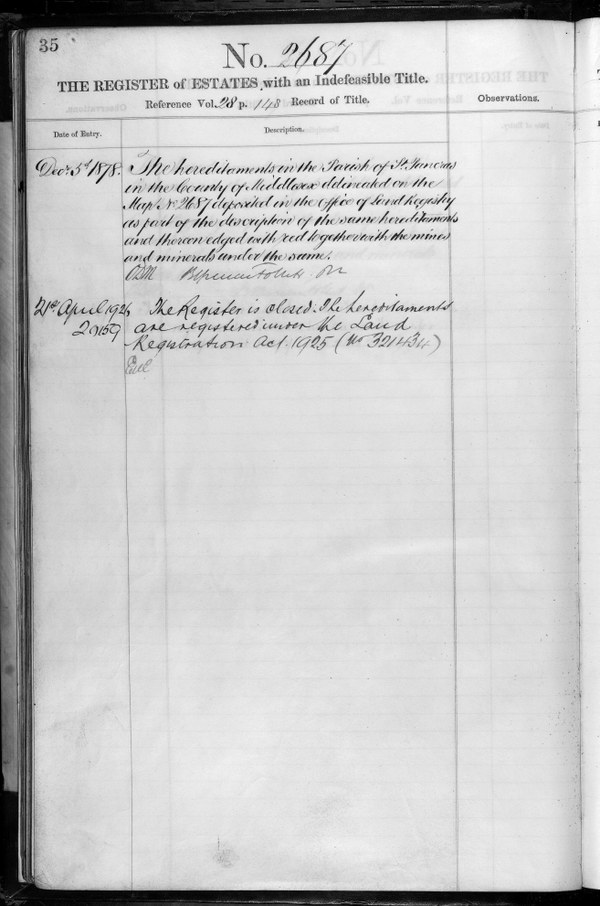 35
No. 2687
THE REGISTER of ESTATES, with an Indefeasible Title.
Reference Vol. 28 p. 143 Record of Title.
Observations.
Date of Entry.
Description.
Decr. 5th 1878.
The hereditaments in the Parish of St. Pancras
in the County of Middlesex delineated on the
Map No. 2687 deposited in the Office of Land Registry
as part of the description of the same hereditaments
and thereon edged with red together with the mines
and minerals under the same.
21st April 1926
The Register is closed. The hereditaments
are registered under the Land
Registration Act. 1925 (No 321434)